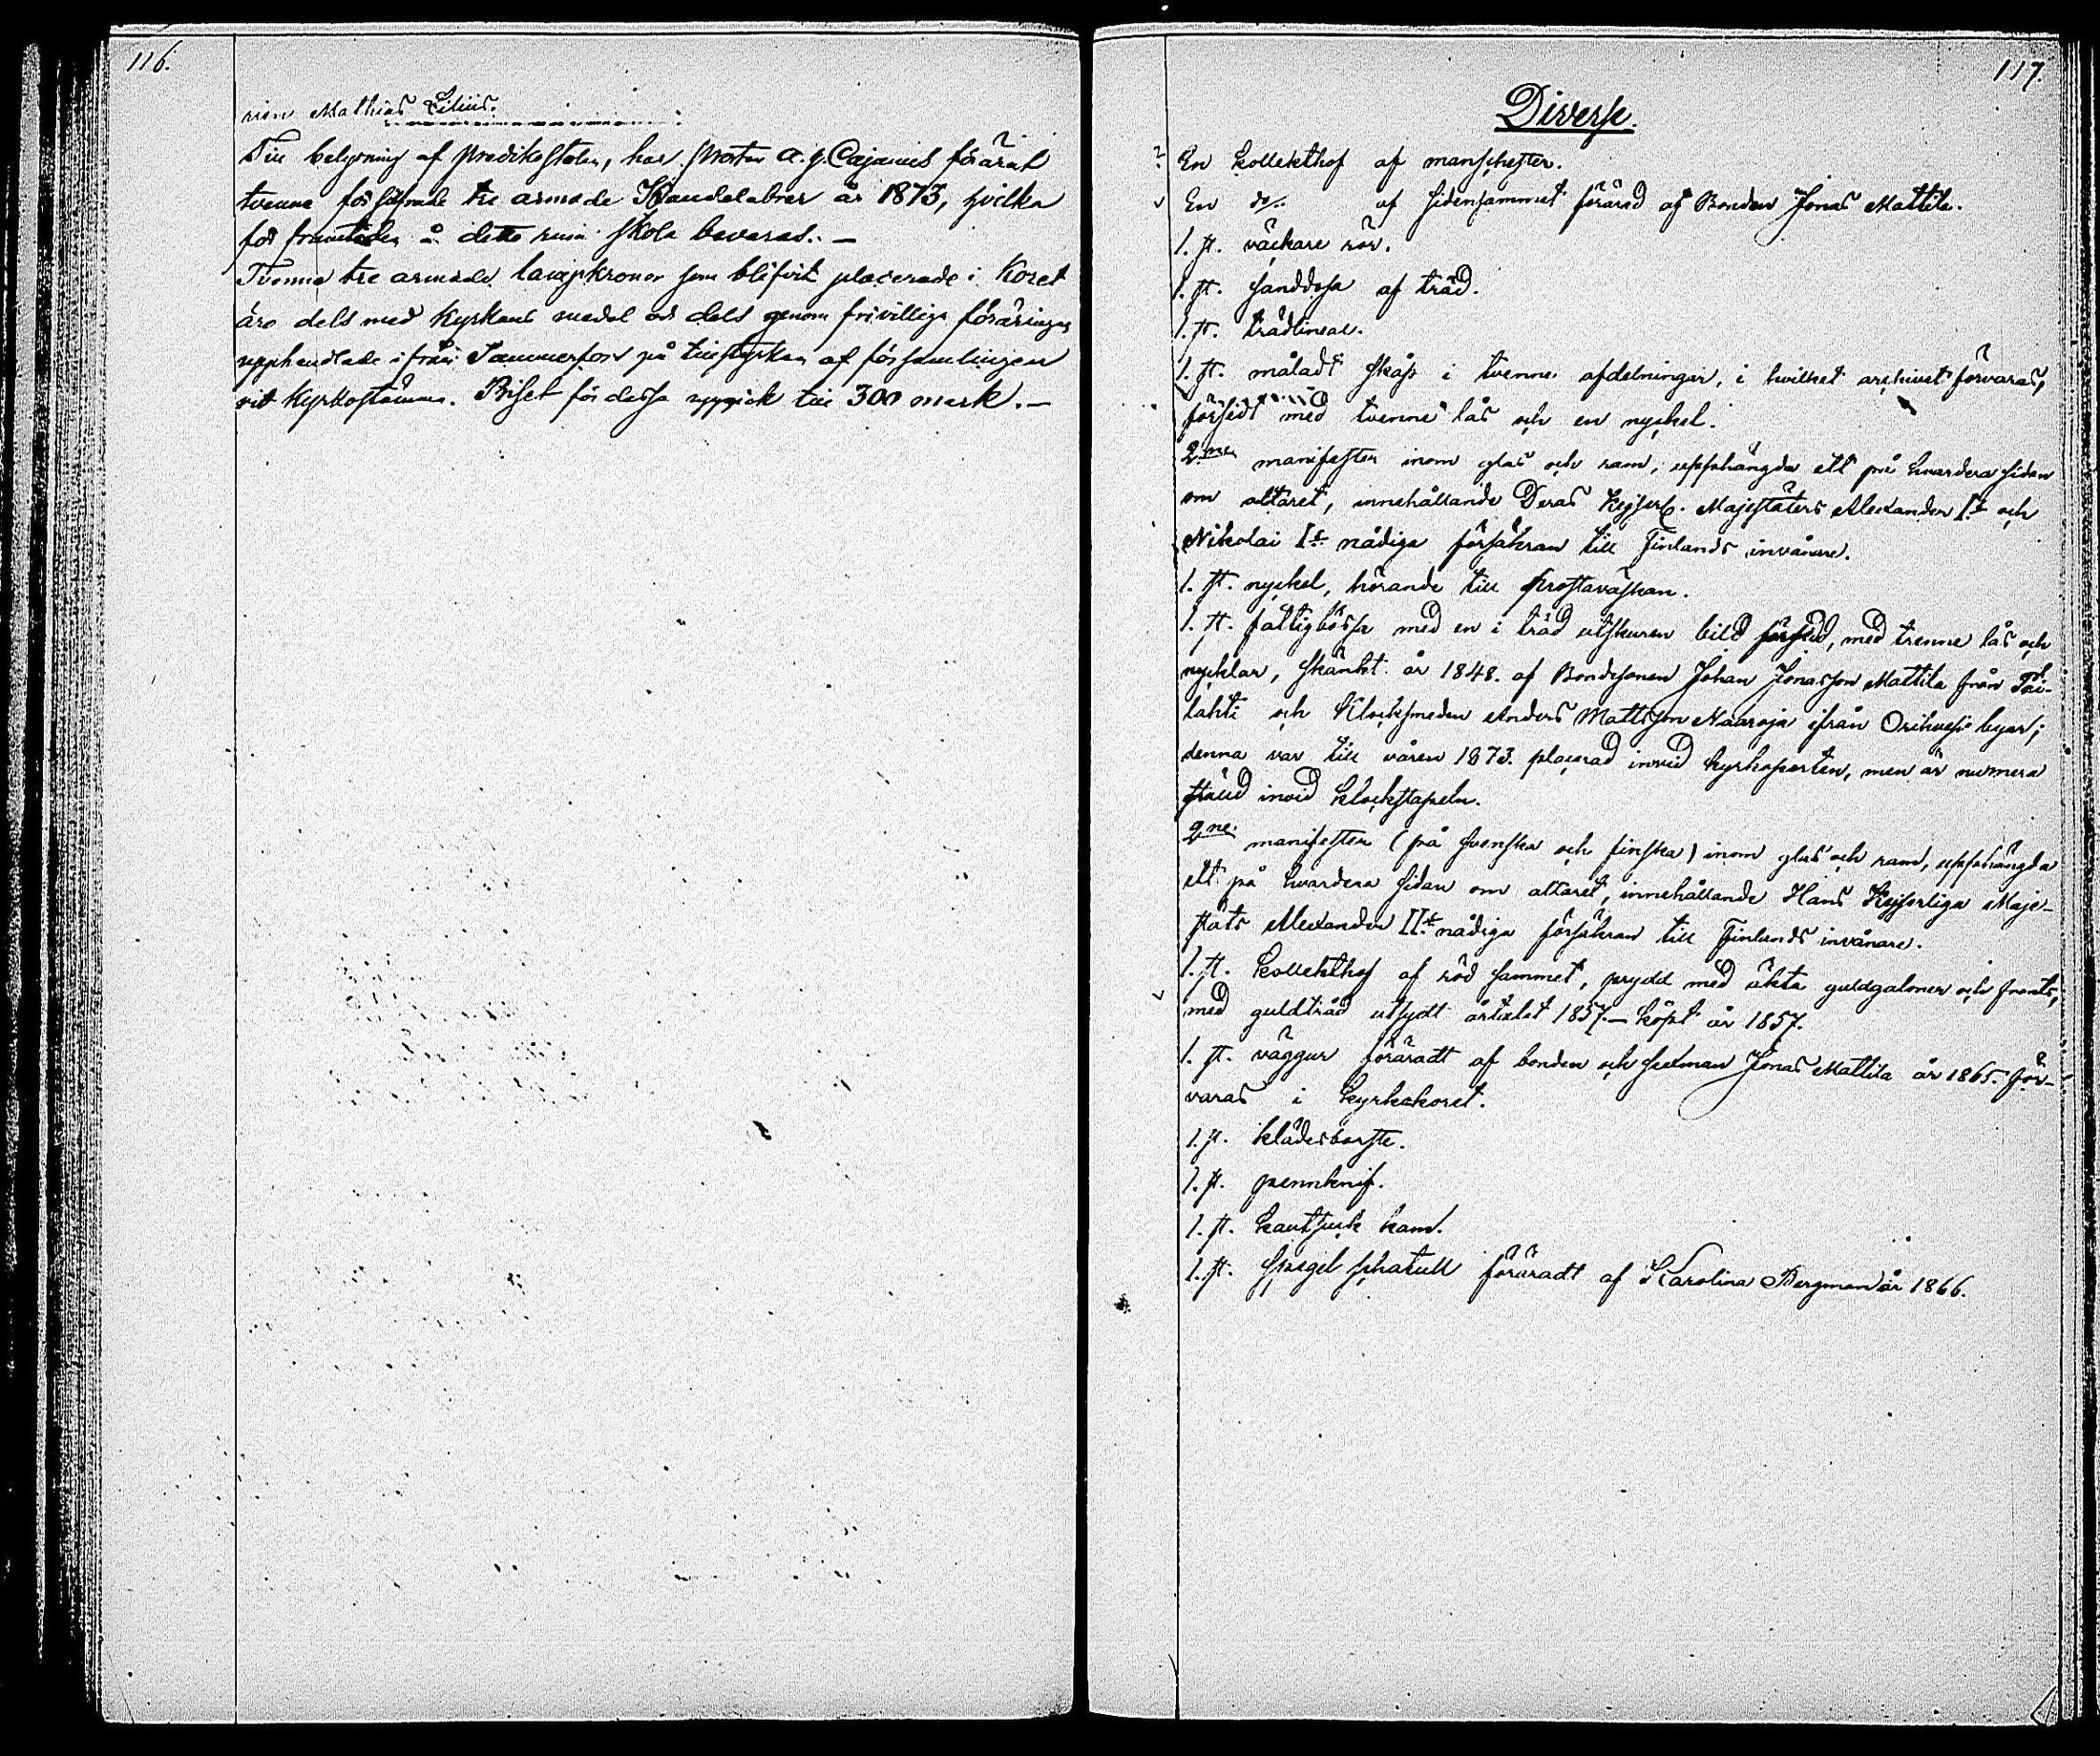 116.
rien Mathias Lilius.
Till belysning af predikstolen, har Prosten A. J. Cajanus förärat
tvenne försilfrade tre armade Kandelabrar år 1873, hvilka
för framtiden å detta rum skola bevaras. —
Tvenne tre armade lampkronor som blifvit placerade i Koret
äro dels med Kyrkans medel och dels genom frivilliga föräringar
upphandlade ifrån Tammerfors på tillstyrkan af församlingen
vid Kyrkostämma. Priset för dessa uppgick till 300 mark. —
117.
Diverse.
? En kollekthof af manschester.
v En do af sidensammet förärad af Bonden Jonas Mattila.
1. st. väckare rör.
1. st. sanddosa af träd.
1. st. trädlineal.
1. st. måladt skåp i tvenne afdelningar, i hvilket archivet förvaras,
försedt med tvenne lås och en nyckel.
2ne manifester inom glas och ram, upphängda ett på hvardera sidan
om altaret, innehållande Deras Kejserl. Majestäters Alexander I:s och
Nikolai I:s nådiga försäkran till Finlands invånare.
1. st. nyckel, hörande till prostaväskan.
1. st. fattigbössa med en i träd utskuren bild försedd, med trenne lås och
nycklar, skänkt år 1848. af Bondesonen Johan Jonasson Mattila från Päi-
lahti och Klocksmeden Anders Mattsson Naaraja ifrån Orihvesi byar;
denna var till våren 1873. placerad invid kyrkoporten, men är numera
stäld invid klockstapeln.
2ne manifester (på svenska och finska) inom glas och ram, upphängda
ett på hvardera sidan om altaret, innehållande Hans Kejserliga Maje-
stäts Alexander II:s nådiga försäkran till Finlands invånare.
v 1. st. kollekthof af röd sammet, prydd med äkta guldgaloner och frants,
med guldtråd utsydt årtalet 1857. — köpt år 1857.
1. st. väggur förärat af bonden och sexman Jonas Mattila år 1865. för-
varas i kyrkokoret.
1. st. klädesborste.
1. st. pennknif.
1. st. kautsuck kam.
1. st. spegel schatull föräradt af Karolina Bergman år 1866.